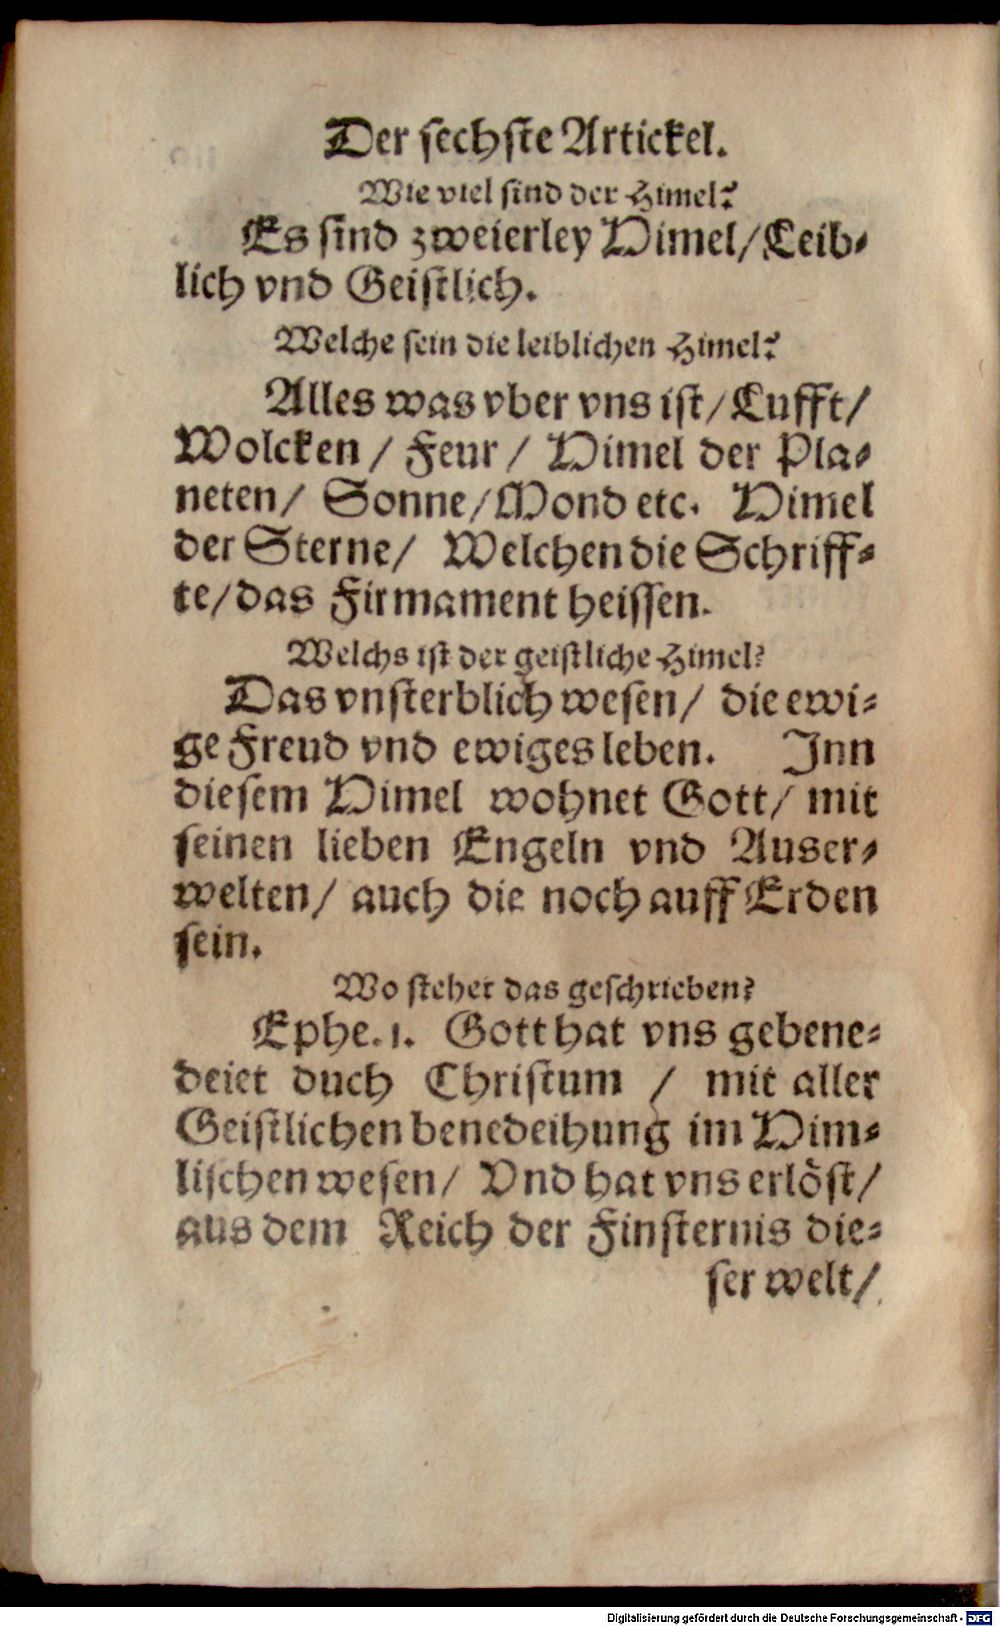 Der sechste Artickel.
Wie viel sind der Himel?
Es sind zweierley Himel/Leib-
lich vnd Geistlich.
Welche sein die leiblichen Himel?
Alles was vber vns ist/Lufft/
Wolcken / Feur / Himel der Pla-
neten/ Sonne/Mond etc. Himel
der Sterne/ Welchen die Schriff-
te/das Firmament heissen.
Welchs ist der geistliche Himel?
Das vnsterblich wesen/ die ewi-
ge Freud vnd ewiges leben. Inn
diesem Himel wohnet Gott/ mit
seinen lieben Engeln vnd Auser-
welten/ auch die noch auff Erden
sein.
Wo stehet das geschrieben?
Ephe. 1. Gott hat vns gebene-
deiet duch Christum / mit aller
Geistlichen benedeihung im Him-
lischen wesen/ Vnd hat vns erlöst/
aus dem Reich der Finsternis die-
ser welt/
Digitalisierung gefördert durch die Deutsche Forschungsgemeinschaft - DFG